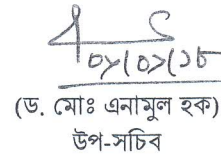 ০১/০১/১৮
(ড. মোঃ এনামুল হক)
উপ-সচিব